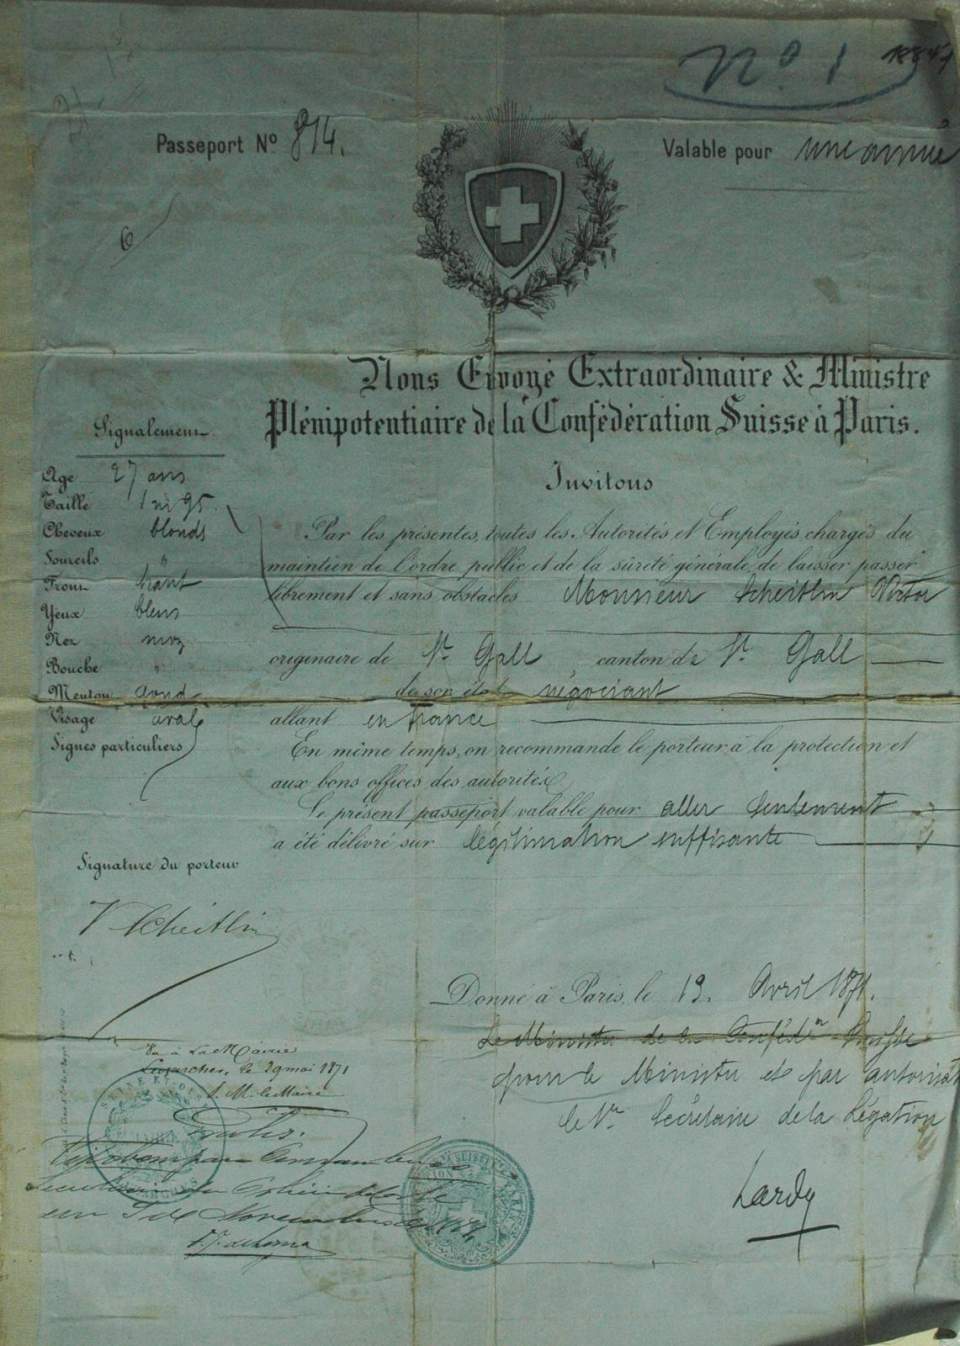 Nº 1
Passeport Nº 814.
Valable pour une année
6
Nous Envoyé Extraordinaire & Ministre
Plénipotentiaire de la Confédération Suisse à Paris.
Invitons
Signalement
Age 27 ans
Taille 1 m 95
Cheveux blonds
Sourcils "
Front haut
Yeux bleus
Nez moy
Bouche "
Menton rond
Visage oval
Signes particuliers
Par les présentes, toutes les Autorités et Employés chargés du
maintien de l'ordre public et de la sûreté générale, de laisser passer
librement et sans obstacles Monsieur Scheitlin Victor
origenaire de St. Gall canton de St. Gall
de son état négociant
allant en France
En même temps, on recommande le porteur à la protection et
aux bons offices des autorités.
Le présent passeport valable pour aller seulement
a été délivré sur légitimation suffisante
Signature du porteur
V Scheitlin
Donné à Paris, le 19. Avril 1871.
Le Ministre de la Confédon Suisse
pour le Ministre et par autorisat
le Secrétaire de la Légation
Lardy
Vu à La Mairie
le 29 mai 1871
M. le Maire